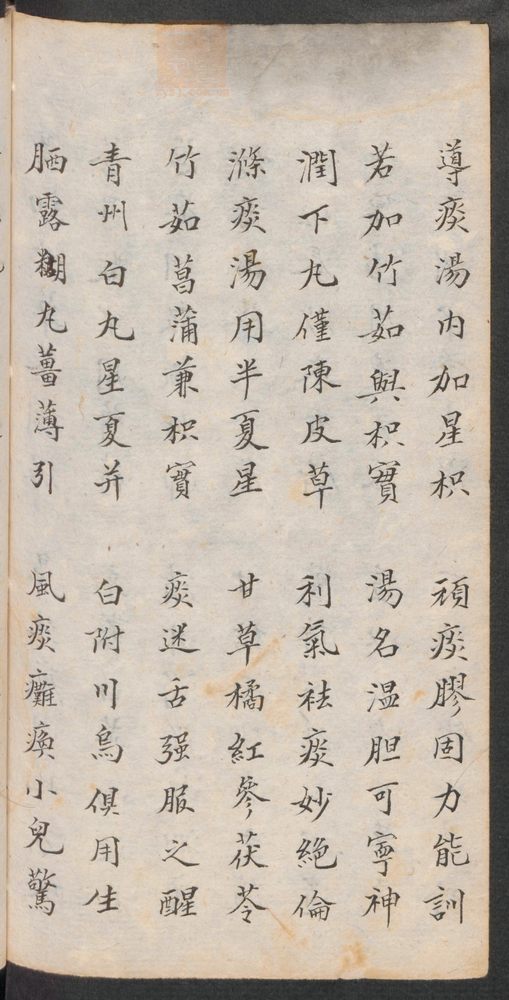 導痰湯内加星枳　頑痰膠固力能訓
若加竹茹與枳實　湯名温胆可寧神
潤下丸僅陳皮草　利氣祛痰妙絶倫
滌痰湯用半夏星　甘草橘紅參茯苓
竹茹菖蒲兼枳實　痰迷舌强服之醒
青州白丸星夏并　白附川烏俱用生
晒露糊丸薑薄引　風痰癱瘓小兒驚